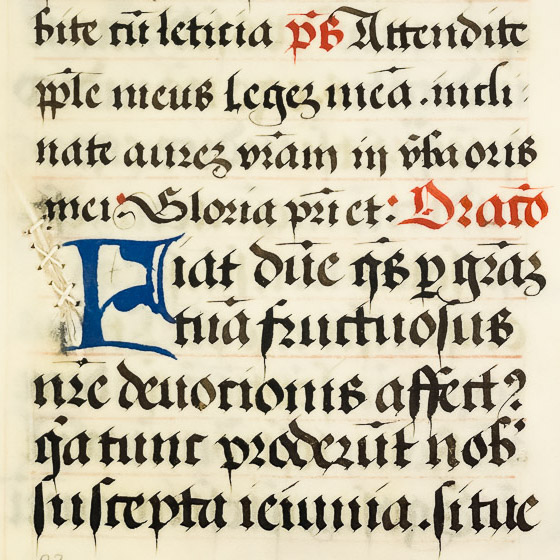 bite cū leticia p̄s Attendite
pple meus legez meā . incli
nate aurez vr̄am in v̄ba oris
mei: Gloria pr̄i et: Oratō
Fiat dn̄e q̄s p gr̄az
tuā fructuosus
nr̄e deuotionis affectꝰ
q̄a tunc proderūt nob'
suscepta ieiunia . si tue